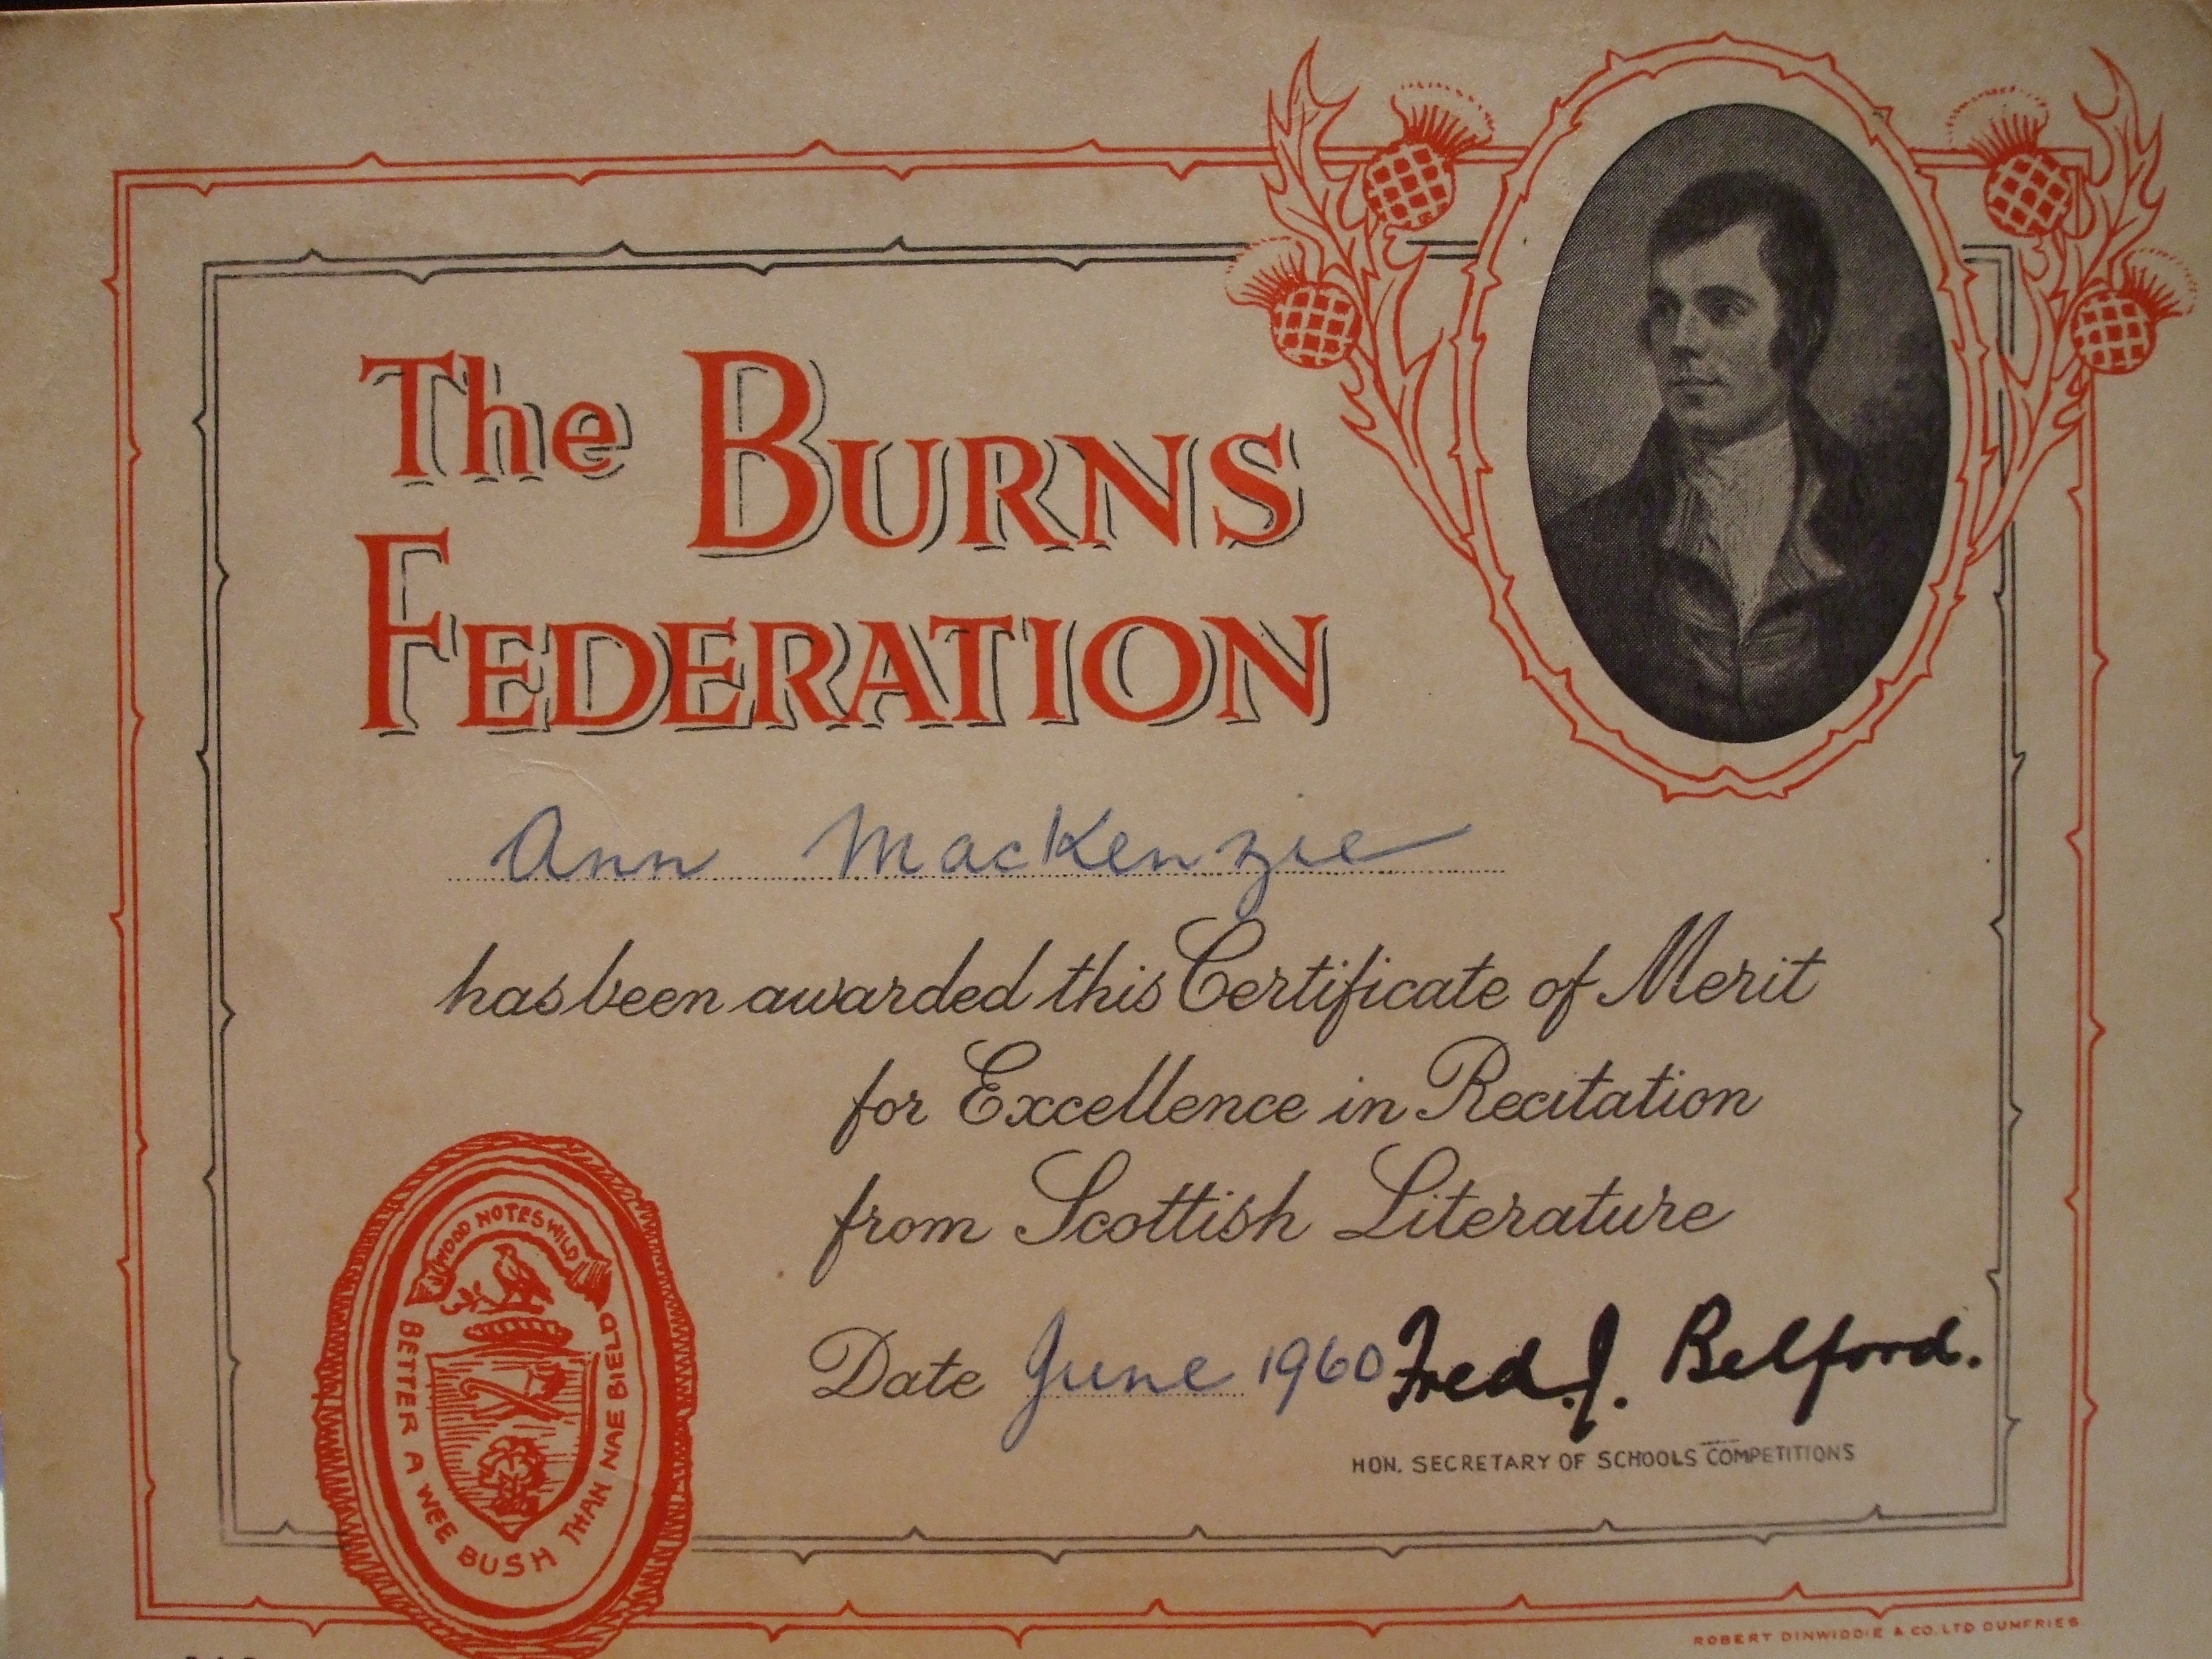 The BURNS
FEDERATION
Ann MacKenzie
has been awarded this Certificate of Merit
for Excellence in Recitation
from Scottish Literature
Date June 1960 Fred. J. Belford.
HON. SECRETARY OF SCHOOLS COMPETITIONS
WOOD NOTES WILD
BETTER A WEE BUSH THAN NAE BIELD
ROBERT DINWIDDIE & CO. LTD DUMFRIES